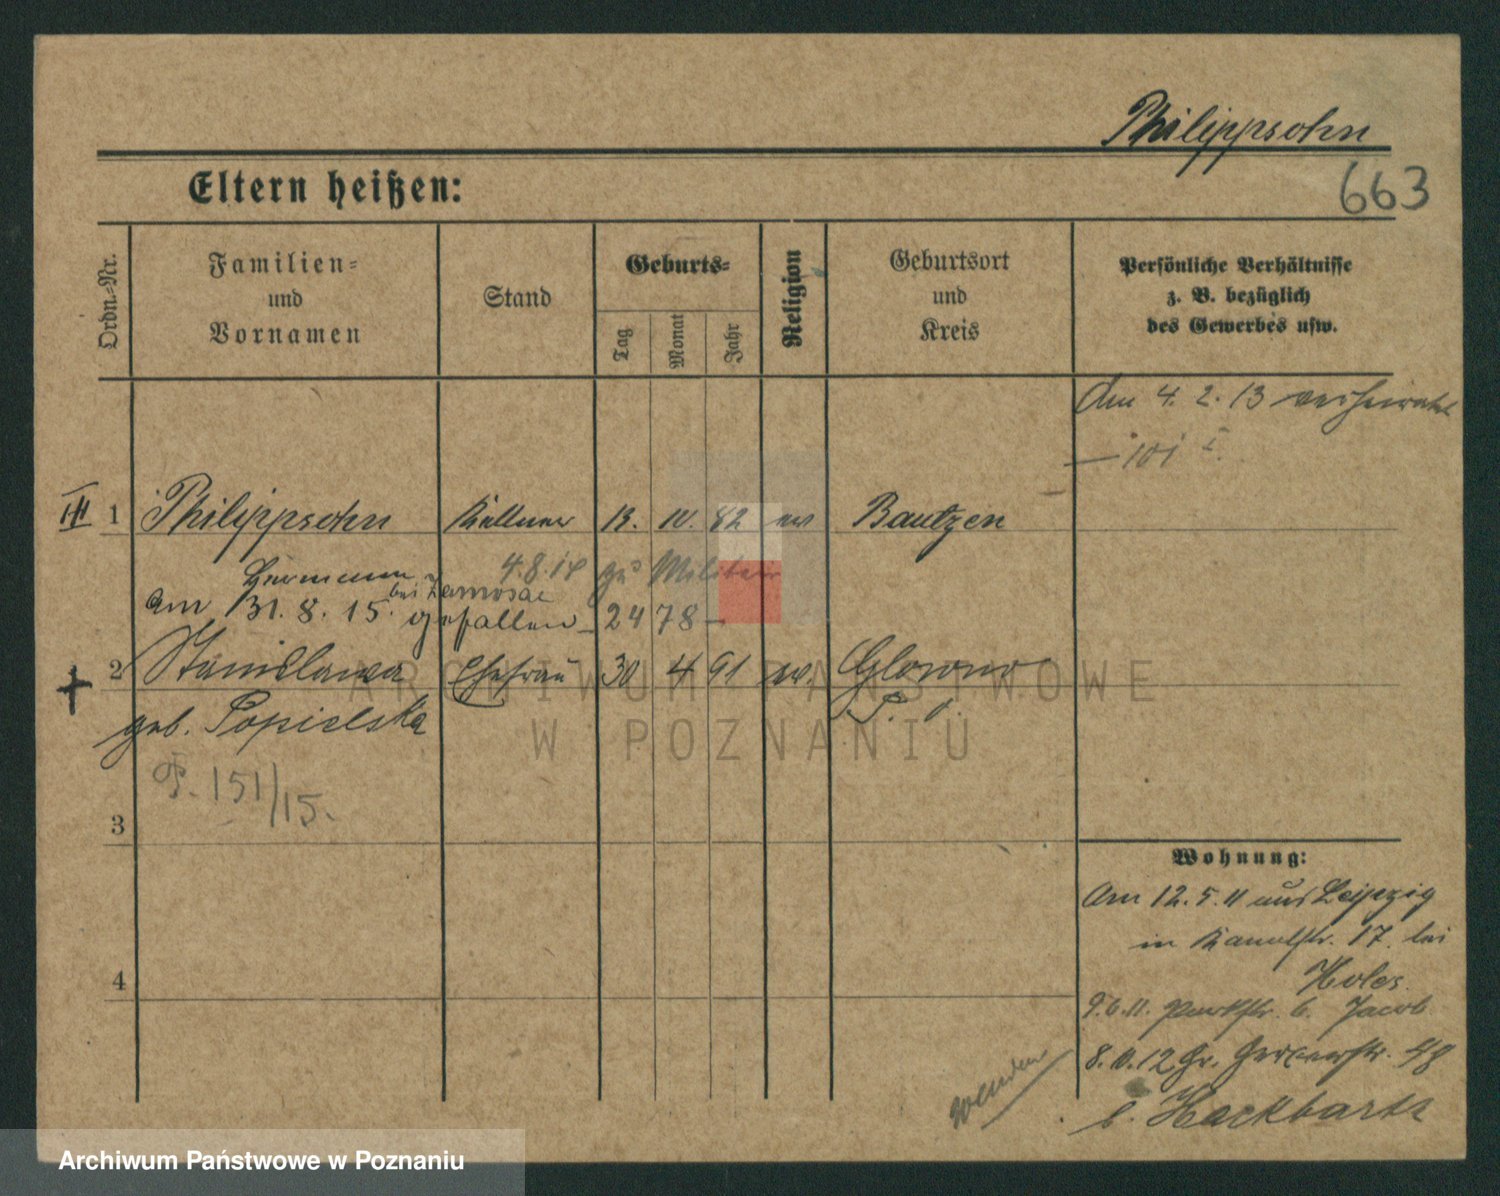 Philippsohn
663
Eltern heißen:
Ordn.-Nr.
Familien- und Vornamen
Stand
Geburts-
Tag
Monat
Jahr
Religion
Geburtsort und Kreis
Persönliche Verhältnisse
z. B. bezüglich
des Gewerbes usw.
Am 4. 2. 13 verheiratet
101
III 1 Philippsohn Kellner 13. 10. 82 ev Bautzen
Hermann 4.8.14 zu Militär
bei Zamosac
Am 31. 8. 15. gefallen 2478
2 Stanislawa Ehefrau 30 4 91 ev. Glowno
geb. Popielska P. O.
P. 151/15.
3
Wohnung:
Am 12. 5. 11 aus Leipzig
in Kanalstr. 17. bei
4
9.6.11. Parkstr. 6. Jacob
8.10.12 Gr. Gerberstr. 48
b. Hackbarth
wenden
ARCHIWUM PAŃSTWOWE
W POZNANIU
Archiwum Państwowe w Poznaniu